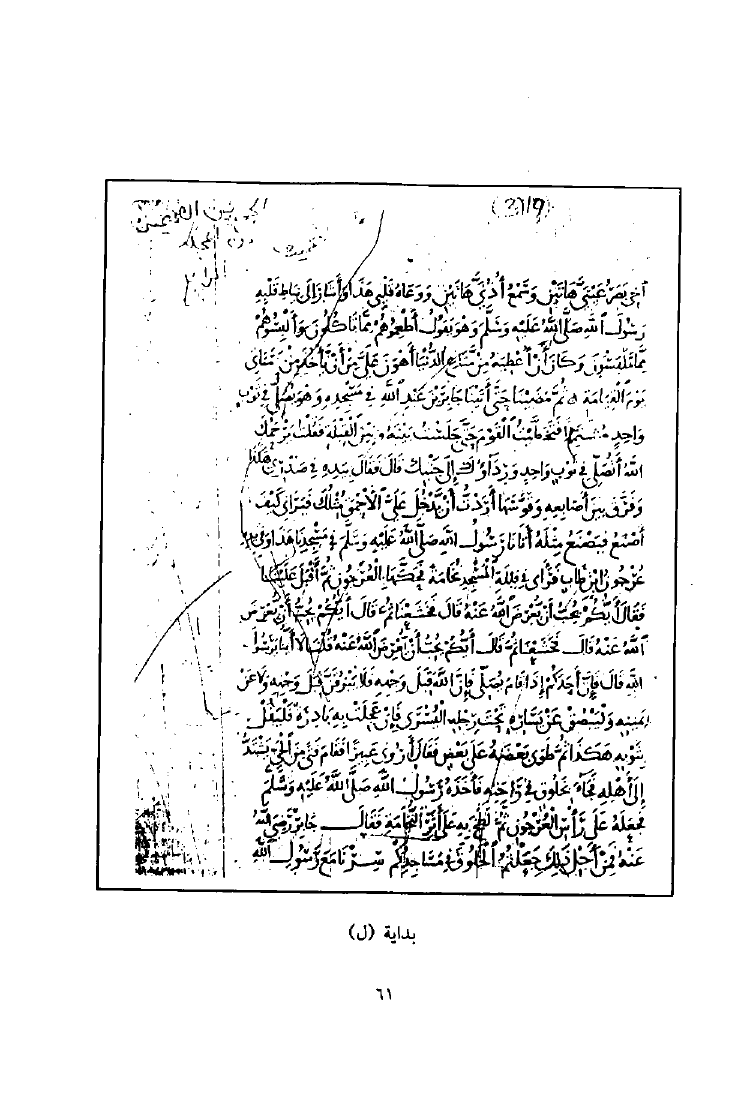 (2719)
الجمع بين الصحيحين
المجلد
الرابع
أخي بَصَرُ عَيْنَيَّ هَاتَيْنِ وَسَمْعُ أُذُنَيَّ هَاتَيْنِ وَوَعَاهُ قَلْبِي هَذَا وَأَشَارَ إِلَى نِيَاطِ قَلْبِهِ
رَسُولَ اللهِ صَلَّى اللهُ عَلَيْهِ وَسَلَّمَ وَهُوَ يَقُولُ أَطْعِمُوهُمْ مِمَّا تَأْكُلُونَ وَأَلْبِسُوهُمْ
مِمَّا تَلْبَسُونَ وَكَانَ أَنْ أَعْطَيْتُهُ مِنْ مَتَاعِ الدُّنْيَا أَهْوَنَ عَلَيَّ مِنْ أَنْ يَأْخُذَ مِنْ حَسَنَاتِي
يَوْمَ الْقِيَامَةِ ثُمَّ مَضَيْنَا حَتَّى أَتَيْنَا جَابِرَ بْنَ عَبْدِ اللهِ فِي مَسْجِدِهِ وَهُوَ يُصَلِّي فِي ثَوْبٍ
وَاحِدٍ مُشْتَمِلًا فَتَخَطَّيْتُ الْقَوْمَ حَتَّى جَلَسْتُ بَيْنَهُ وَبَيْنَ الْقِبْلَةِ فَقُلْتُ يَرْحَمُكَ
اللهُ أَتُصَلِّي فِي ثَوْبٍ وَاحِدٍ وَرِدَاؤُكَ إِلَى جَنْبِكَ قَالَ فَقَالَ بِيَدِهِ فِي صَدْرِي هَكَذَا
وَفَرَّقَ بَيْنَ أَصَابِعِهِ وَقَوَّسَهَا أَرَدْتُ أَنْ يَدْخُلَ عَلَيَّ الْأَحْمَقُ مِثْلُكَ فَيَرَانِي كَيْفَ
أَصْنَعُ فَيَصْنَعُ مِثْلَهُ أَتَانَا رَسُولُ اللهِ صَلَّى اللهُ عَلَيْهِ وَسَلَّمَ فِي مَسْجِدِنَا هَذَا وَفِي يَدِهِ
عُرْجُونُ ابْنِ طَابٍ فَرَأَى فِي قِبْلَةِ الْمَسْجِدِ نُخَامَةً فَحَكَّهَا بِالْعُرْجُونِ ثُمَّ أَقْبَلَ عَلَيْنَا
فَقَالَ أَيُّكُمْ يُحِبُّ أَنْ يُعْرِضَ اللهُ عَنْهُ قَالَ فَخَشَعْنَا ثُمَّ قَالَ أَيُّكُمْ يُحِبُّ أَنْ يُعْرِضَ
اللهُ عَنْهُ قَالَ فَخَشَعْنَا ثُمَّ قَالَ أَيُّكُمْ يُحِبُّ أَنْ يُعْرِضَ اللهُ عَنْهُ قُلْنَا لَا أَيُّنَا يَا رَسُولَ
اللهِ قَالَ فَإِنَّ أَحَدَكُمْ إِذَا قَامَ يُصَلِّي فَإِنَّ اللهَ قِبَلَ وَجْهِهِ فَلَا يَبْزُقَنَّ قِبَلَ وَجْهِهِ وَلَا عَنْ
يَمِينِهِ وَلْيَبْصُقْ عَنْ يَسَارِهِ تَحْتَ رِجْلِهِ الْيُسْرَى فَإِنْ عَجِلَتْ بِهِ بَادِرَةٌ فَلْيَقُلْ
بِثَوْبِهِ هَكَذَا ثُمَّ طَوَى بَعْضَهُ عَلَى بَعْضٍ فَقَالَ أَرُونِي عَبِيرًا فَقَامَ فَتًى مِنَ الْحَيِّ يَشْتَدُّ
إِلَى أَهْلِهِ فَجَاءَ بِخَلُوقٍ فِي رَاحَتِهِ فَأَخَذَهُ رَسُولُ اللهِ صَلَّى اللهُ عَلَيْهِ وَسَلَّمَ
فَجَعَلَهُ عَلَى رَأْسِ الْعُرْجُونِ ثُمَّ لَطَخَ بِهِ عَلَى أَثَرِ النُّخَامَةِ فَقَالَ جَابِرٌ رَضِيَ اللهُ
عَنْهُ فَمِنْ أَجْلِ ذَلِكَ جَعَلْتُمُ الْخَلُوقَ فِي مَسَاجِدِكُمْ سِرْنَا مَعَ رَسُولِ اللهِ
بداية (ل)
٦١